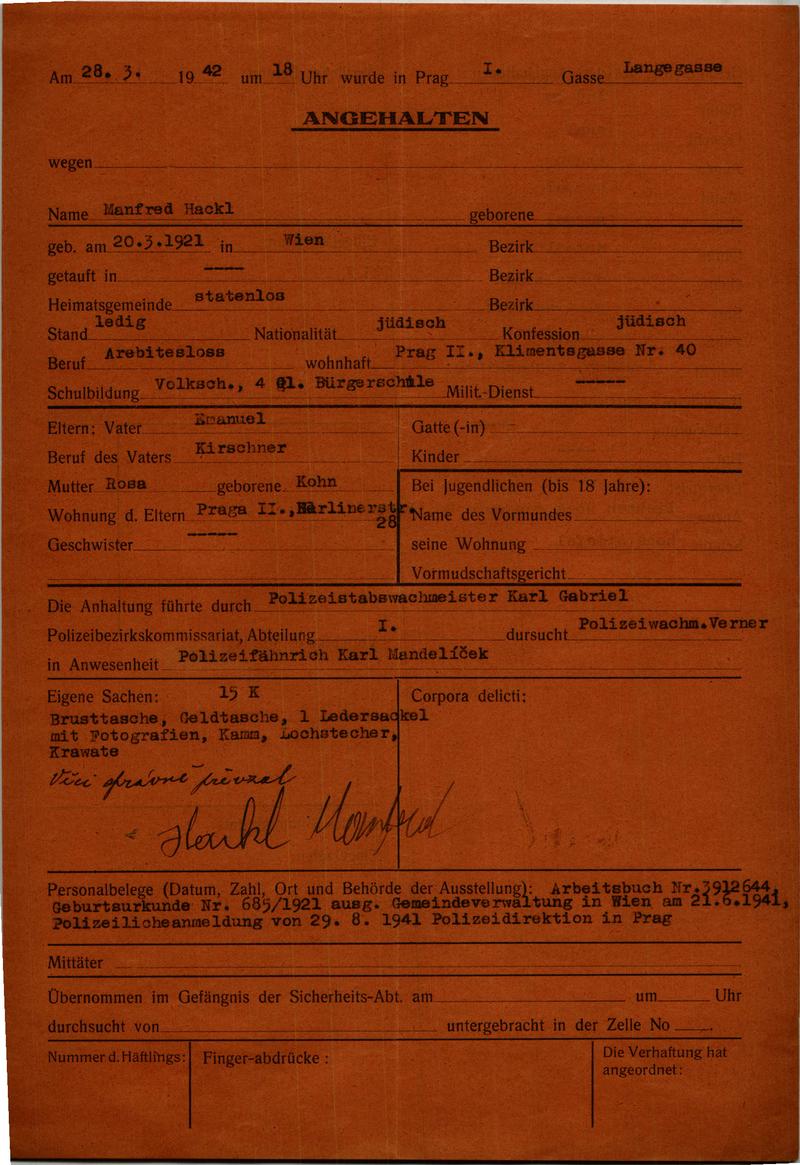 Am 28. 3. 19 42 um 18 Uhr wurde in Prag I. Gasse Langegasse
ANGEHALTEN
wegen
Name Manfred Hackl geborene
geb. am 20.3.1921 in Wien Bezirk
getauft in ---- Bezirk
Heimatsgemeinde statenlos Bezirk
Stand ledig Nationalität jüdisch Konfession jüdisch
Beruf Arebitesloss wohnhaft Prag II., Klimentsgasse Nr. 40
Schulbildung Volksch., 4 Bürgerschule Milit.-Dienst -----
Eltern: Vater Emanuel Gatte (-in)
Beruf des Vaters Kirschner Kinder
Mutter Rosa geborene Kohn Bei Jugendlichen (bis 18 Jahre):
Wohnung d. Eltern Praga II., Berlinerstr. 28 Name des Vormundes
Geschwister ----- seine Wohnung
Vormudschaftsgericht
Die Anhaltung führte durch Polizeistabswachmeister Karl Gabriel
Polizeibezirkskommissariat, Abteilung I. dursucht Polizeiwachm.Verner
in Anwesenheit Polizeifähnrich Karl Mandelíček
Eigene Sachen: 15 K Corpora delicti:
Brusttasche, Geldtasche, 1 Ledersackel
mit Fotografien, Kamm, Lochstecher,
Krawate
Věci správně převzal
Hackl Manfred
Personalbelege (Datum, Zahl, Ort und Behörde der Ausstellung): Arbeitsbuch Nr.3912644,
Geburtsurkunde Nr. 685/1921 ausg. Gemeindeverwaltung in Wien am 21.6.1941,
Polizeilicheanmeldung von 29. 8. 1941 Polizeidirektion in Prag
Mittäter
Übernommen im Gefängnis der Sicherheits-Abt. am um Uhr
durchsucht von untergebracht in der Zelle No
Nummer d. Häftlings: Finger-abdrücke : Die Verhaftung hat
angeordnet: